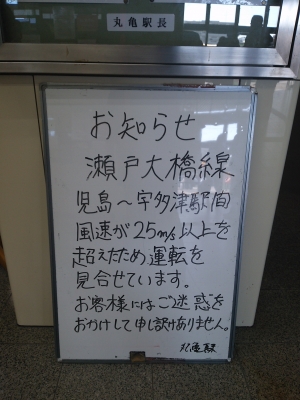 丸亀駅長
お知らせ
瀬戸大橋線
児島～宇多津駅間
風速が25m/s以上を
超えたため運転を
見合せています。
お客様にはご迷惑を
おかけして申し訳ありません。
丸亀駅